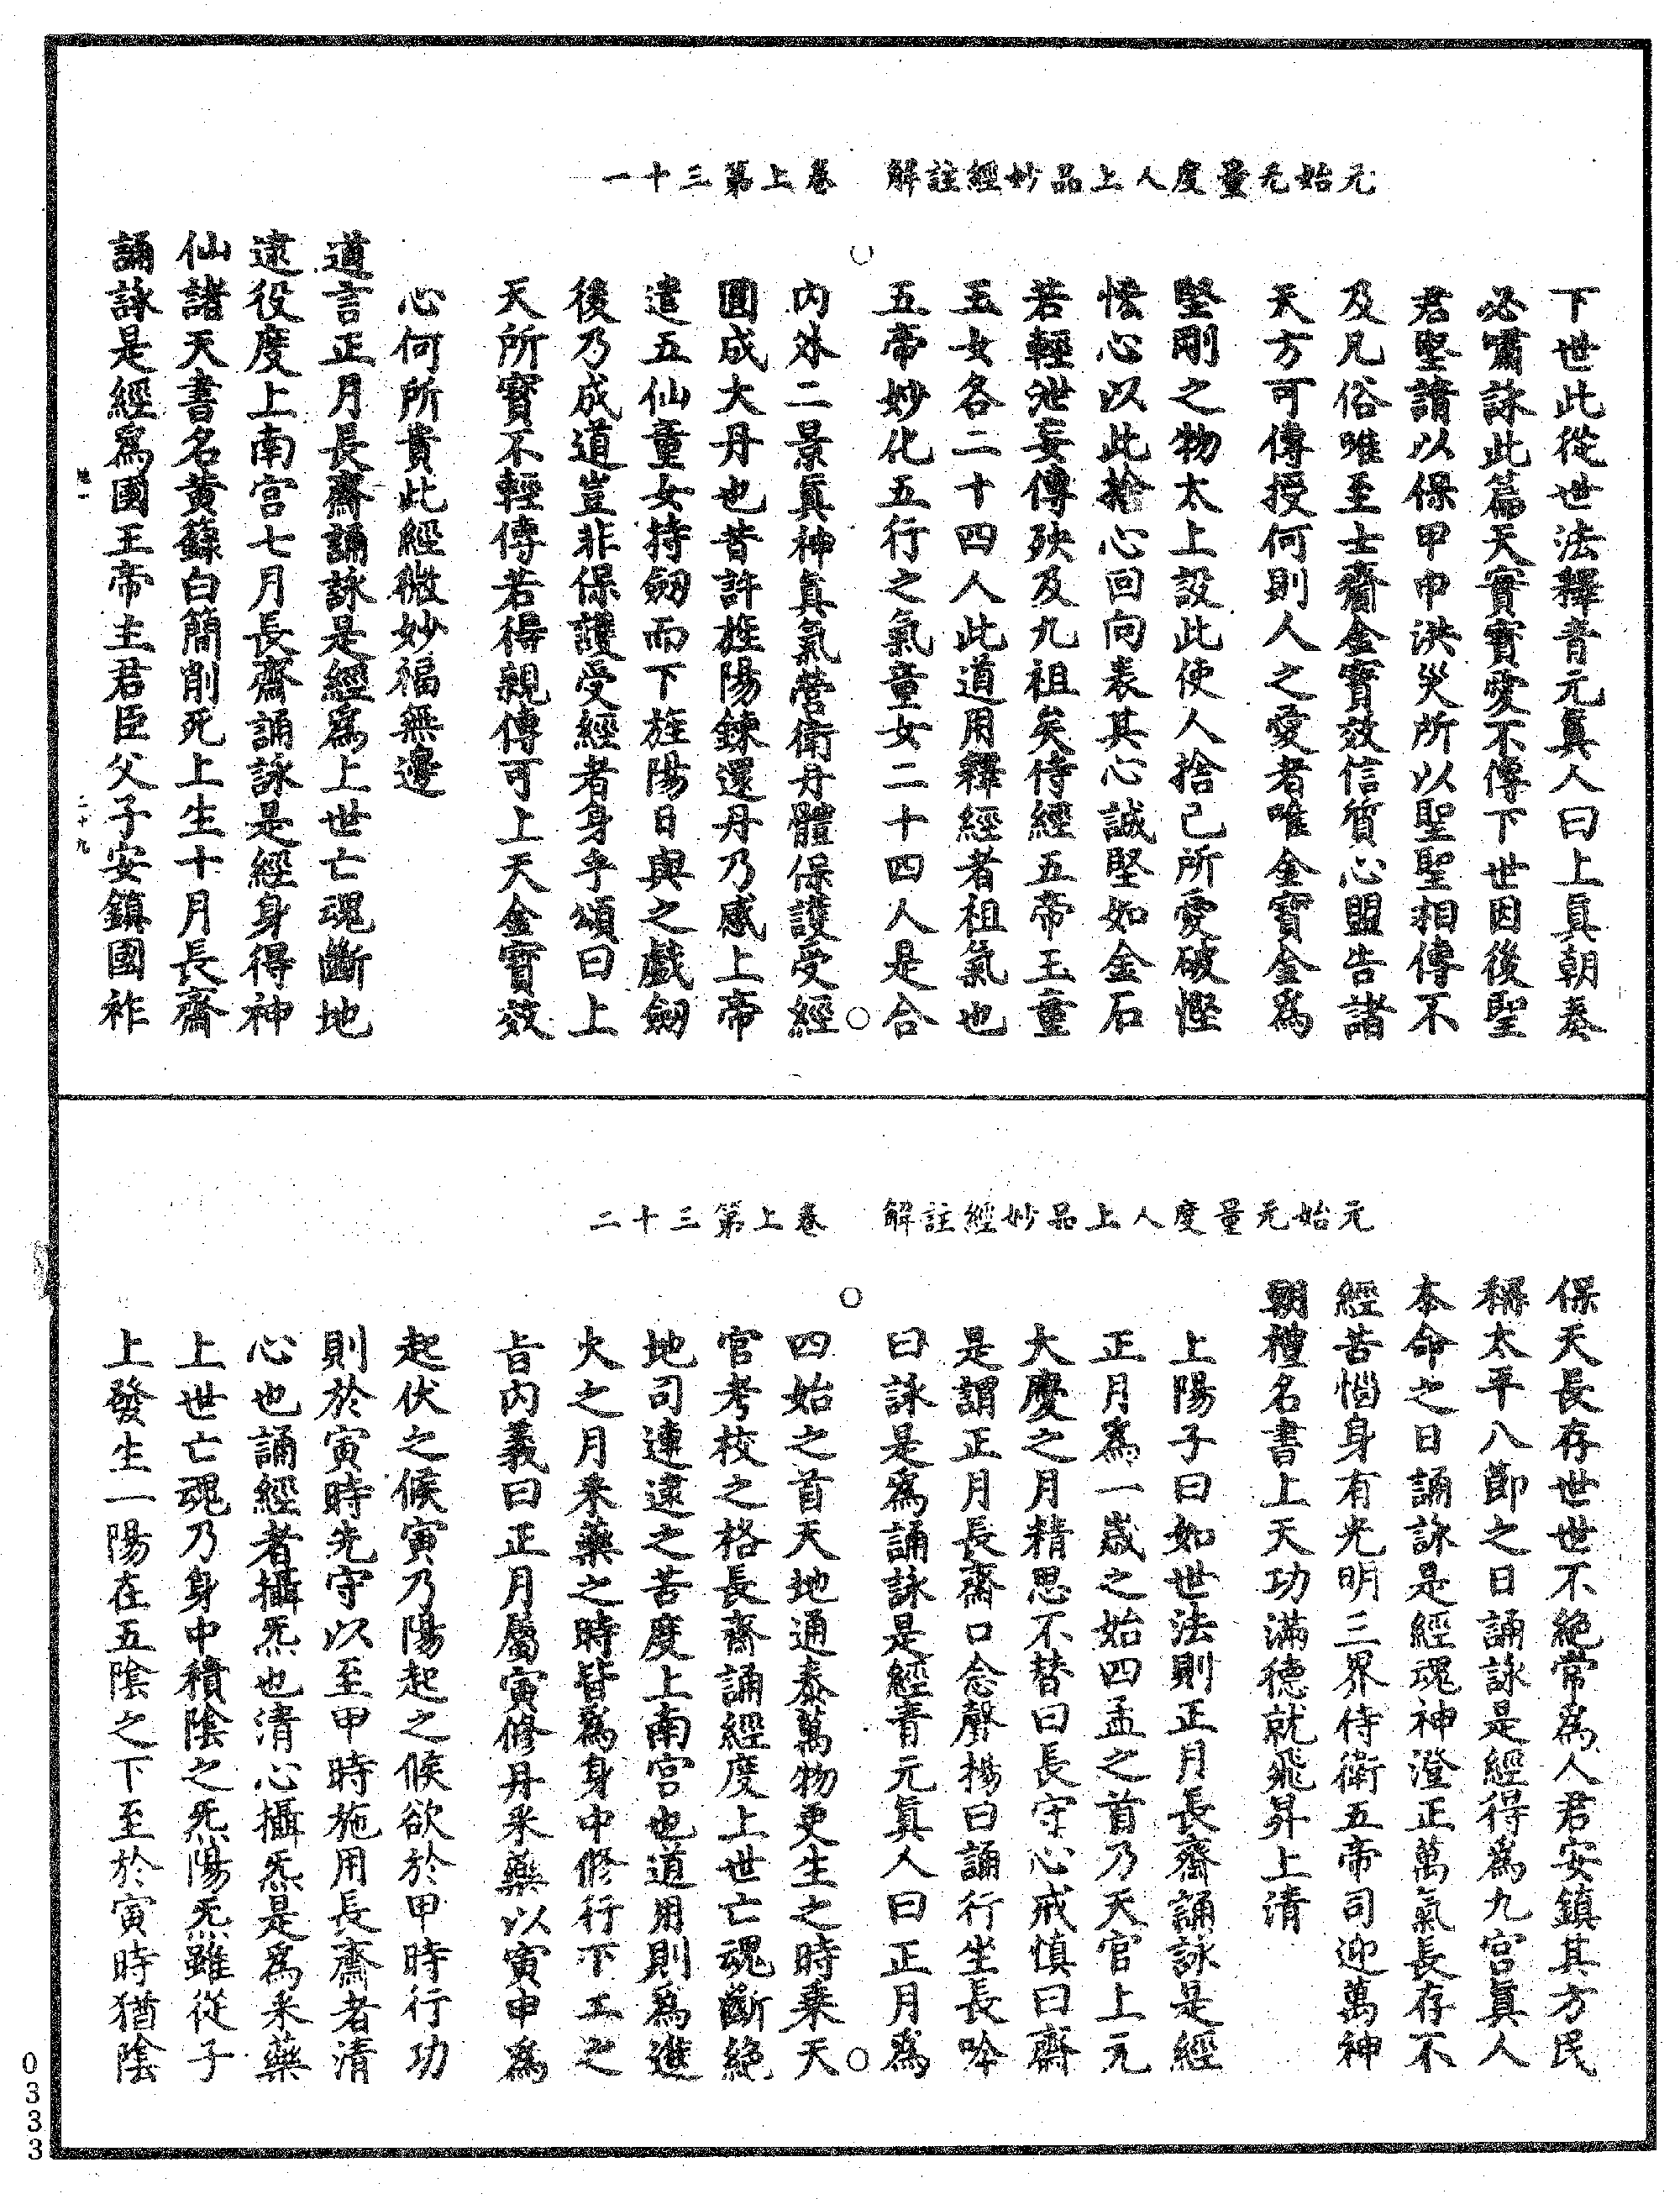 元始无量度人上品妙經註解　卷上第三十一
下世此從世法釋青元真人曰上真朝奏
必嘯詠此篇天寶寶愛不傳下世因後聖
君堅請以保甲申洪災所以聖聖相傳不
及凡俗唯至士齎金寶效信質心盟告諸
天方可傳授何則人之愛者唯金寶金爲
堅剛之物太上設此使人捨己所愛破慳
悋心以此捨心回向表其心誠堅如金石
若輕泄妄傳殃及九祖矣侍經五帝玉童
玉女各二十四人此道用釋經者祖氣也
五帝妙化五行之氣童女二十四人是合
內外二景真神真氣營衛丹體保護受經
圓成大丹也昔許旌陽鍊還丹乃感上帝
遣五仙童女持劒而下旌陽日與之戲劒
後乃成道豈非保護受經者身乎頌曰上
天所寶不輕傳若得親傳可上天金寶效
心何所貴此經微妙福無邊
道言正月長齋誦詠是經爲上世亡魂斷地
逮役度上南宮七月長齋誦詠是經身得神
仙諸天書名黃籙白簡削死上生十月長齋
誦詠是經爲國王帝主君臣父子安鎮國祚
二十九
元始无量度人上品妙經註解　卷上第三十二
保天長存世世不絕常爲人君安鎮其方民
稱太平八節之日誦詠是經得爲九宮真人
本命之日誦詠是經魂神澄正萬氣長存不
經苦惱身有光明三界侍衛五帝司迎萬神
朝禮名書上天功滿德就飛昇上清
上陽子曰如世法則正月長齋誦詠是經
正月爲一歲之始四孟之首乃天官上元
大慶之月精思不替曰長守心戒慎曰齋
是謂正月長齋口念聲揚曰誦行坐長吟
曰詠是爲誦詠是經青元真人曰正月爲
四始之首天地通泰萬物更生之時乘天
官考校之格長齋誦經度上世亡魂斷絕
地司連逮之苦度上南宮也道用則爲進
火之月采藥之時皆爲身中修行下工之
旨內義曰正月屬寅修丹采藥以寅申爲
起伏之候寅乃陽起之候欲於甲時行功
則於寅時先守以至甲時施用長齋者清
心也誦經者攝炁也清心攝炁是爲采藥
上世亡魂乃身中積陰之炁陽炁雖從子
上發生一陽在五陰之下至於寅時猶陰
0333